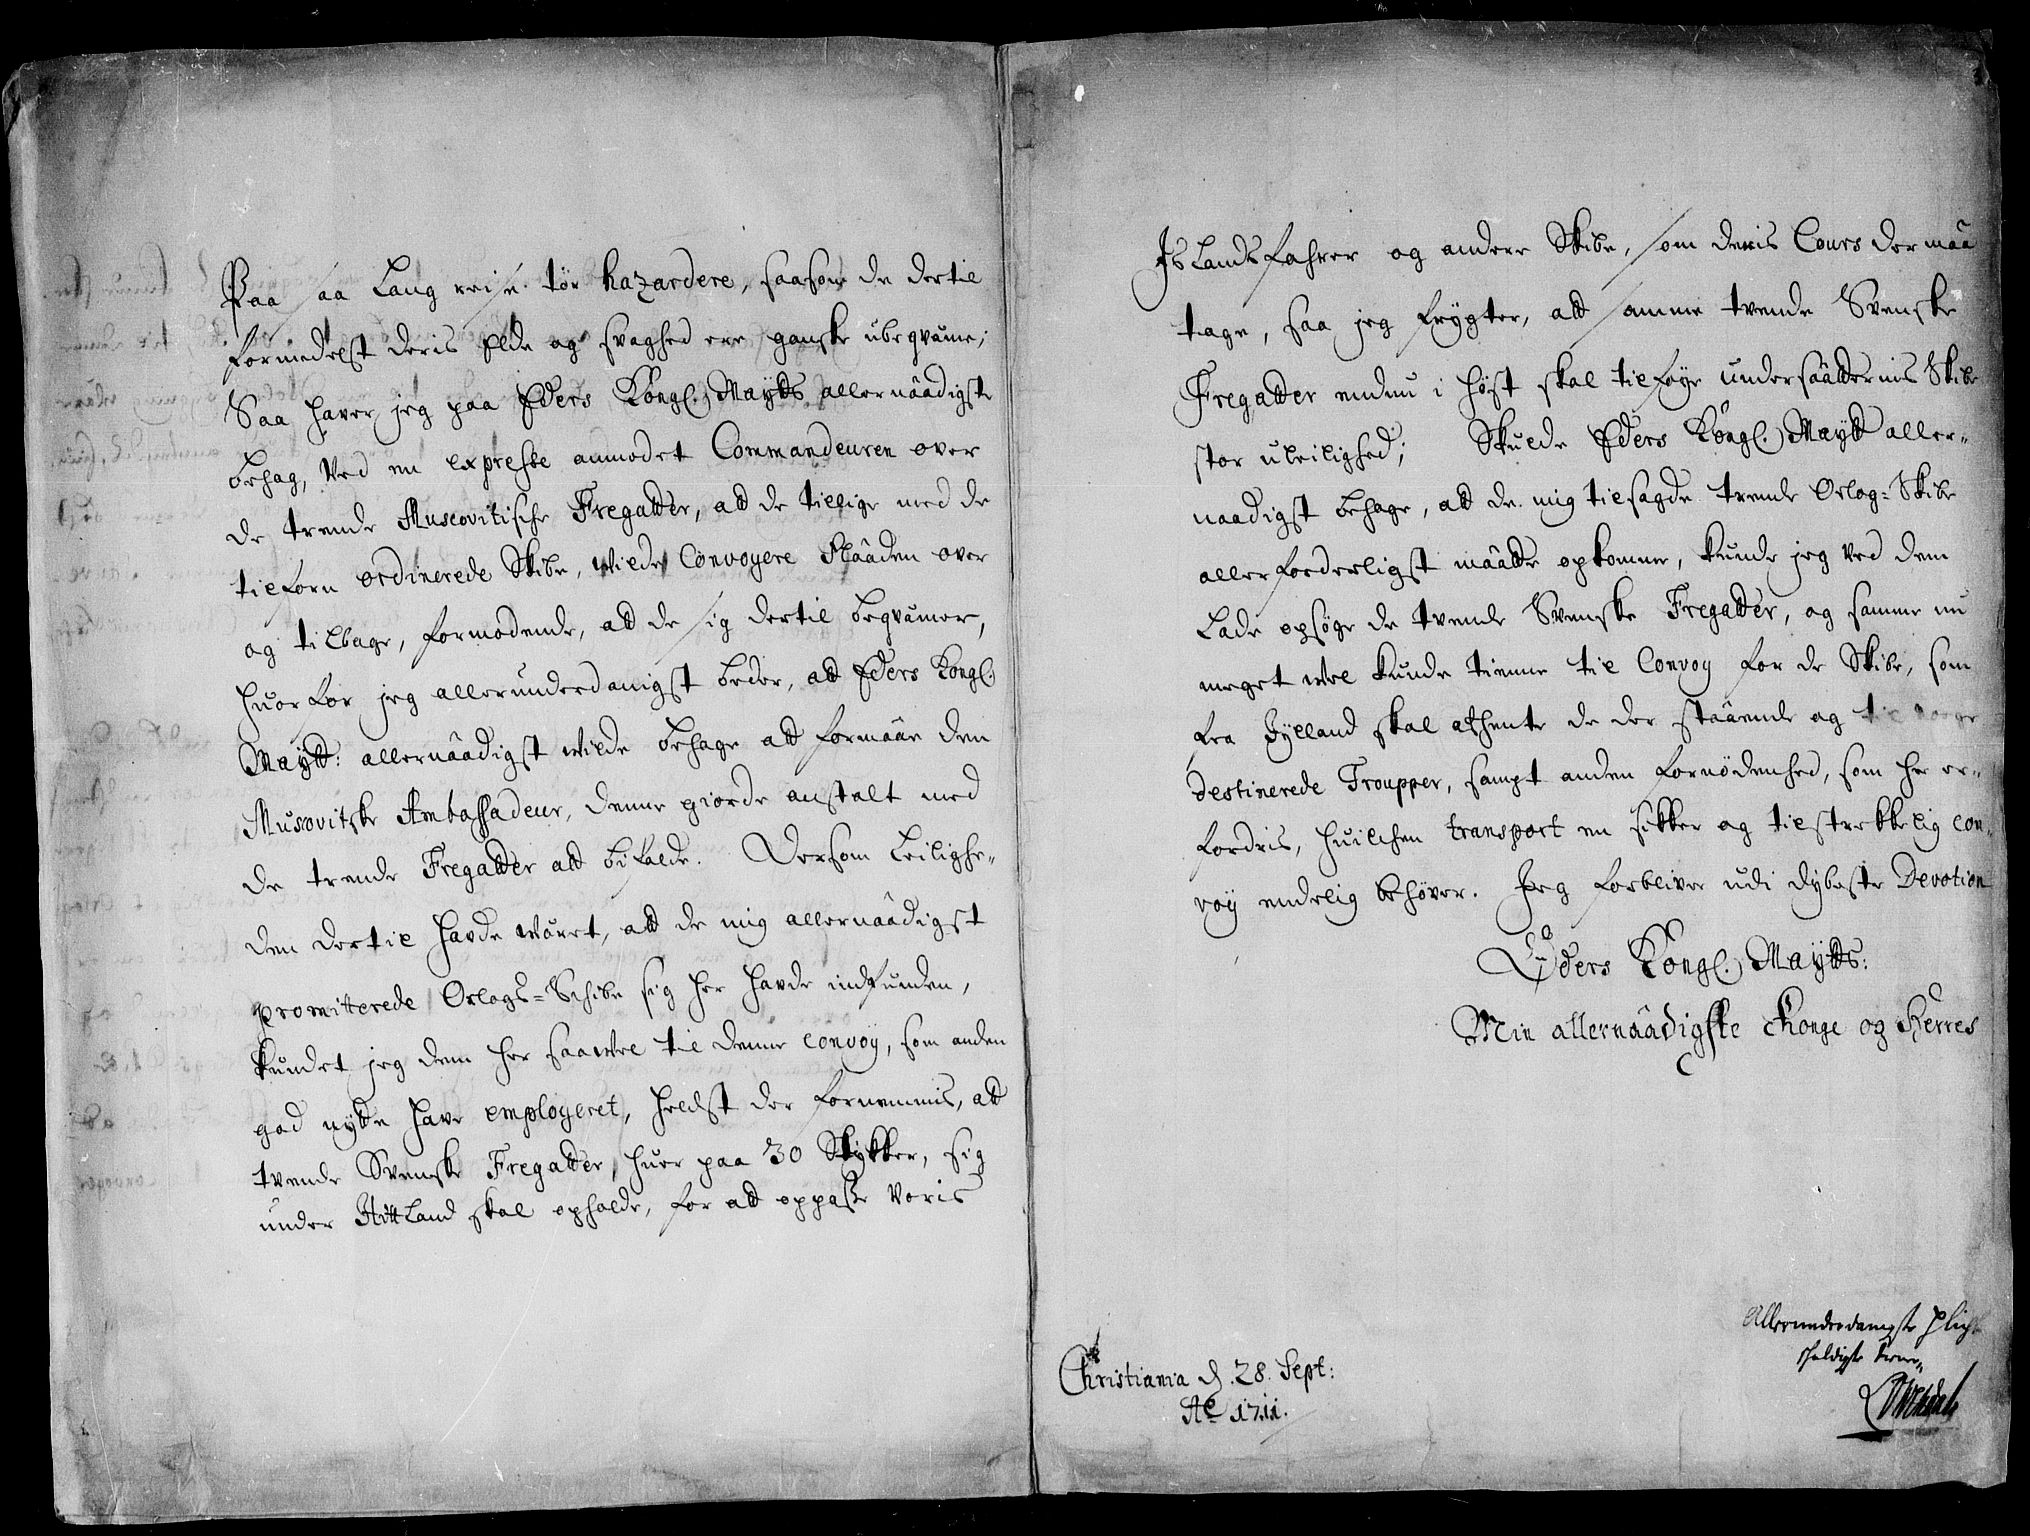 Paa saa Lang reise tør hazardere, saasom de dertil
formedelst deris Elde og svaghed ere ganske ubeqvæme;
Saa haver jeg paa Eders Kongl. Maytts allernaadigste
behag, Ved en expresse anmodet Commandeuren over
de trende Muscovitische Fregatter, att de tillige med de
tilforn ordinerede Skibe, wilde Convoyere Flaaden over
og tilbage, formodende, att de sig dertil beqvämer,
huorfor jeg allerunderdanigst beder, att Eders Kongl.
Maytt: allernaadigst wilde behage att formaae den
Muscovitske Ambassadeur, denne giorde anstalt med
de trende Fregatter att bifalde. Dersom Leilighe-
den dertil hafde wäret, att de mig allernaadigst
promitterede Orlogs-Schibe sig her hafde indfunden,
kundet jeg dem her saawel til denne convoy, som anden
god nytte have employeret, heldst der fornemmis, att
tvende Svenske Fregatter, huer paa 30 Stykker, sig
under Hittland skal opholde, for att oppasse Voris
Islandsfahrer og andere Skibe, som deris Cours der maa
tage, saa jeg frygter, att samme tvende Svenske
Fregatter endnu i høst skal tilføye undersaatternis Skibe
stor uleilighed; Skulde Eders Kongl. Maytt aller-
naadigst behage, att de mig tilsagde trende Orlog-Skibe
allerforderligst maatte opkomme, kunde jeg ved dem
Lade opsøge de tvende Svenske Fregatter, og samme nu
meget wel kunde tienne til Convoy for de Skibe, som
fra Jylland skal afhente de der staaende og til Norge
destinerede Troupper, sampt anden fornødenhed, som her er-
fordris, huilchen transport en sikker og tilstrekkelig con-
voy endelig behøver. Jeg forbliver udi dybeste Devotion
Eders Kongl. Maytts:
Min allernaadigste Konge og Herres
Allerunderdanigste pligt
skyldigste tiener
Christiania d. 28. Sept:
Ao 1711.